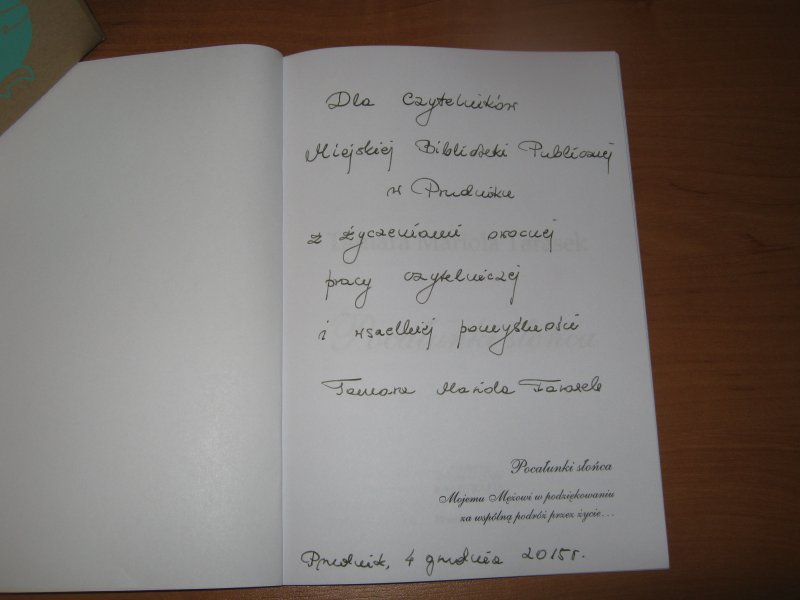 Dla Czytelników
Miejskiej Biblioteki Publicznej
w Prudniku
z życzeniami owocnej
pracy czytelniczej
i wszelkiej pomyślności
Tamara Mariola Tarasek
Pocałunki słońca
Mojemu Mężowi w podziękowaniu
za wspólną podróż przez życie...
Prudnik, 4 grudnia 2015r.